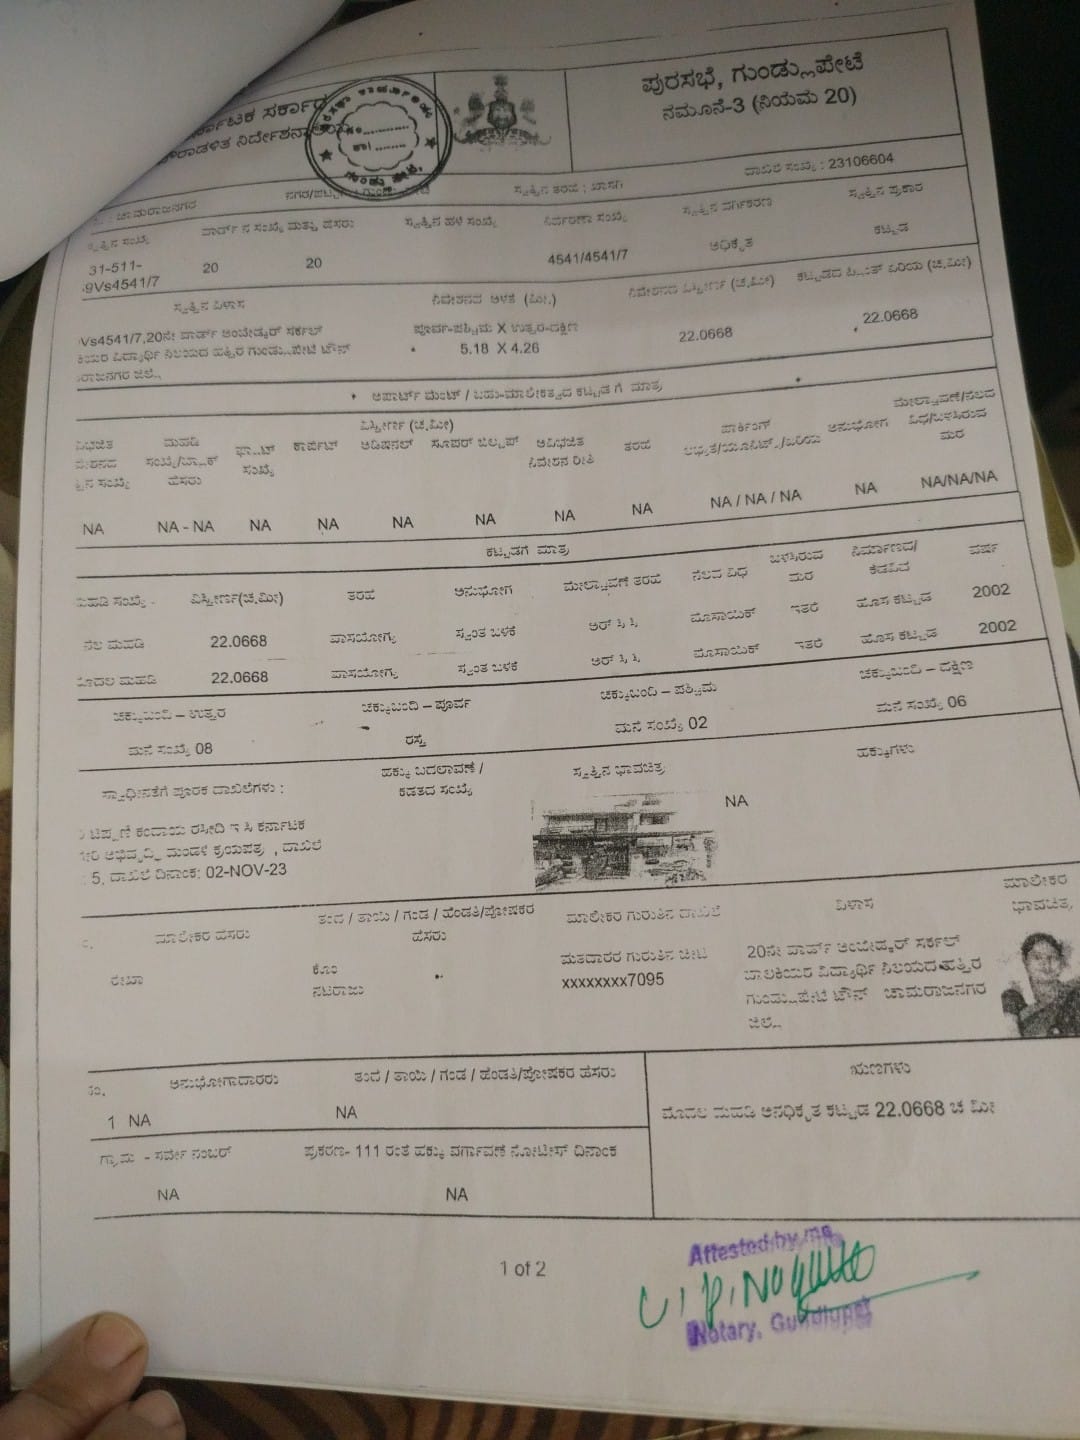 ಕರ್ನಾಟಕ ಸರ್ಕಾರ
ಪೌರಾಡಳಿತ ನಿರ್ದೇಶನಾಲಯ
ಪುರಸಭೆ, ಗುಂಡ್ಲುಪೇಟೆ
ನಮೂನೆ-3 (ನಿಯಮ 20)
ದಾಖಲೆ ಸಂಖ್ಯೆ : 23106604
: ಚಾಮರಾಜನಗರ
ಸ್ವತ್ತಿನ ತರಹ : ಖಾಸಗಿ
ಸ್ವತ್ತಿನ ಸಂಖ್ಯೆ ವಾರ್ಡ್ ನ ಸಂಖ್ಯೆ ಮತ್ತು ಹೆಸರು ಸ್ವತ್ತಿನ ಹಳೆ ಸಂಖ್ಯೆ ನಿರ್ಧರಣಾ ಸಂಖ್ಯೆ ಸ್ವತ್ತಿನ ವರ್ಗೀಕರಣ ಸ್ವತ್ತಿನ ಪ್ರಕಾರ
31-511-
9Vs4541/7 20 20 4541/4541/7 ಅಧಿಕೃತ ಕಟ್ಟಡ
ಸ್ವತ್ತಿನ ವಿಳಾಸ ನಿವೇಶನದ ಅಳತೆ (ಮೀ.) ನಿವೇಶನದ ವಿಸ್ತೀರ್ಣ (ಚ.ಮೀ) ಕಟ್ಟಡದ ಪ್ಲಿಂತ್ ಏರಿಯ (ಚ.ಮೀ)
Vs4541/7,20ನೇ ವಾರ್ಡ್ ಅಂಬೇಡ್ಕರ್ ಸರ್ಕಲ್ ಪೂರ್ವ-ಪಶ್ಚಿಮ X ಉತ್ತರ-ದಕ್ಷಿಣ 22.0668 22.0668
ಕಿಯರ ವಿದ್ಯಾರ್ಥಿ ನಿಲಯದ ಹತ್ತಿರ ಗುಂಡ್ಲುಪೇಟೆ ಟೌನ್ 5.18 X 4.26
ರಾಜನಗರ ಜಿಲ್ಲೆ.
ಅಪಾರ್ಟ್ ಮೆಂಟ್ / ಬಹು-ಮಾಲೀಕತ್ವದ ಕಟ್ಟಡ ಗೆ ಮಾತ್ರ
ವಿಸ್ತೀರ್ಣ (ಚ.ಮೀ)
ವಿಭಜಿತ ಮಹಡಿ ಫ್ಲಾಟ್ ಕಾರ್ಪೆಟ್ ಅಡಿಷನಲ್ ಸೂಪರ್ ಬಿಲ್ಟಪ್ ಅವಿಭಜಿತ ತರಹ ಪಾರ್ಕಿಂಗ್ ಅನುಭೋಗ ಮೇಲ್ಛಾವಣೆ/ನೆಲದ
ಸಂಖ್ಯೆ/ಬ್ಲಾಕ್ ಸಂಖ್ಯೆ ನಿವೇಶನ ರೀತಿ ಲಭ್ಯತೆ/ಯೂನಿಟ್ಸ್/ಏರಿಯ ವಿಧ/ಬಳಸಿರುವ
ಹೆಸರು ಮರ
NA NA - NA NA NA NA NA NA NA NA / NA / NA NA NA/NA/NA
ಕಟ್ಟಡಗೆ ಮಾತ್ರ
ಮಹಡಿ ಸಂಖ್ಯೆ ವಿಸ್ತೀರ್ಣ(ಚ.ಮೀ) ತರಹ ಅನುಭೋಗ ಮೇಲ್ಛಾವಣೆ ತರಹ ನೆಲದ ವಿಧ ಬಳಸಿರುವ ಮರ ನಿರ್ಮಾಣದ/ ಕೆಡವಿದ ವರ್ಷ
ನೆಲ ಮಹಡಿ 22.0668 ವಾಸಯೋಗ್ಯ ಸ್ವಂತ ಬಳಕೆ ಆರ್ ಸಿ ಸಿ ಮೊಸಾಯಿಕ್ ಇತರೆ ಹೊಸ ಕಟ್ಟಡ 2002
ಮೊದಲ ಮಹಡಿ 22.0668 ವಾಸಯೋಗ್ಯ ಸ್ವಂತ ಬಳಕೆ ಆರ್ ಸಿ ಸಿ ಮೊಸಾಯಿಕ್ ಇತರೆ ಹೊಸ ಕಟ್ಟಡ 2002
ಚಕ್ಕುಬಂದಿ – ಉತ್ತರ ಚಕ್ಕುಬಂದಿ – ಪೂರ್ವ ಚಕ್ಕುಬಂದಿ – ಪಶ್ಚಿಮ ಚಕ್ಕುಬಂದಿ – ದಕ್ಷಿಣ
ಮನೆ ಸಂಖ್ಯೆ 08 ರಸ್ತೆ ಮನೆ ಸಂಖ್ಯೆ 02 ಮನೆ ಸಂಖ್ಯೆ 06
ಸ್ವಾಧೀನತೆಗೆ ಪೂರಕ ದಾಖಲೆಗಳು : ಹಕ್ಕು ಬದಲಾವಣೆ / ಸ್ವತ್ತಿನ ಭಾವಚಿತ್ರ ಹಕ್ಕುಗಳು
ಕಡತದ ಸಂಖ್ಯೆ
NA
ಟಿಪ್ಪಣಿ ಕಂದಾಯ ರಸೀದಿ ಇ ಸಿ ಕರ್ನಾಟಕ
ಅಭಿವೃದ್ಧಿ ಮಂಡಳಿ ಕ್ರಯಪತ್ರ , ದಾಖಲೆ
5, ದಾಖಲೆ ದಿನಾಂಕ: 02-NOV-23
ಮಾಲೀಕರ ಹೆಸರು ತಂದೆ / ತಾಯಿ / ಗಂಡ / ಹೆಂಡತಿ/ಪೋಷಕರ ಹೆಸರು ಮಾಲೀಕರ ಗುರುತಿನ ದಾಖಲೆ ವಿಳಾಸ ಮಾಲೀಕರ ಭಾವಚಿತ್ರ
ರೇಖಾ ಕೋಂ ಮತದಾರರ ಗುರುತಿನ ಚೀಟಿ 20ನೇ ವಾರ್ಡ್ ಅಂಬೇಡ್ಕರ್ ಸರ್ಕಲ್
ನಟರಾಜು xxxxxxxx7095 ಬಾಲಕಿಯರ ವಿದ್ಯಾರ್ಥಿ ನಿಲಯದ ಹತ್ತಿರ
ಗುಂಡ್ಲುಪೇಟೆ ಟೌನ್ ಚಾಮರಾಜನಗರ
ಜಿಲ್ಲೆ.
ಸಂ. ಅನುಭೋಗದಾರರು ತಂದೆ / ತಾಯಿ / ಗಂಡ / ಹೆಂಡತಿ/ಪೋಷಕರ ಹೆಸರು ಋಣಗಳು
1 NA NA ಮೊದಲ ಮಹಡಿ ಅನಧಿಕೃತ ಕಟ್ಟಡ 22.0668 ಚ ಮೀ
ಗ್ರಾಮ - ಸರ್ವೇ ನಂಬರ್ ಪ್ರಕರಣ- 111 ರಂತೆ ಹಕ್ಕು ವರ್ಗಾವಣೆ ನೋಟೀಸ್ ದಿನಾಂಕ
NA NA
1 of 2
Attested by me
Notary, Gundlupet